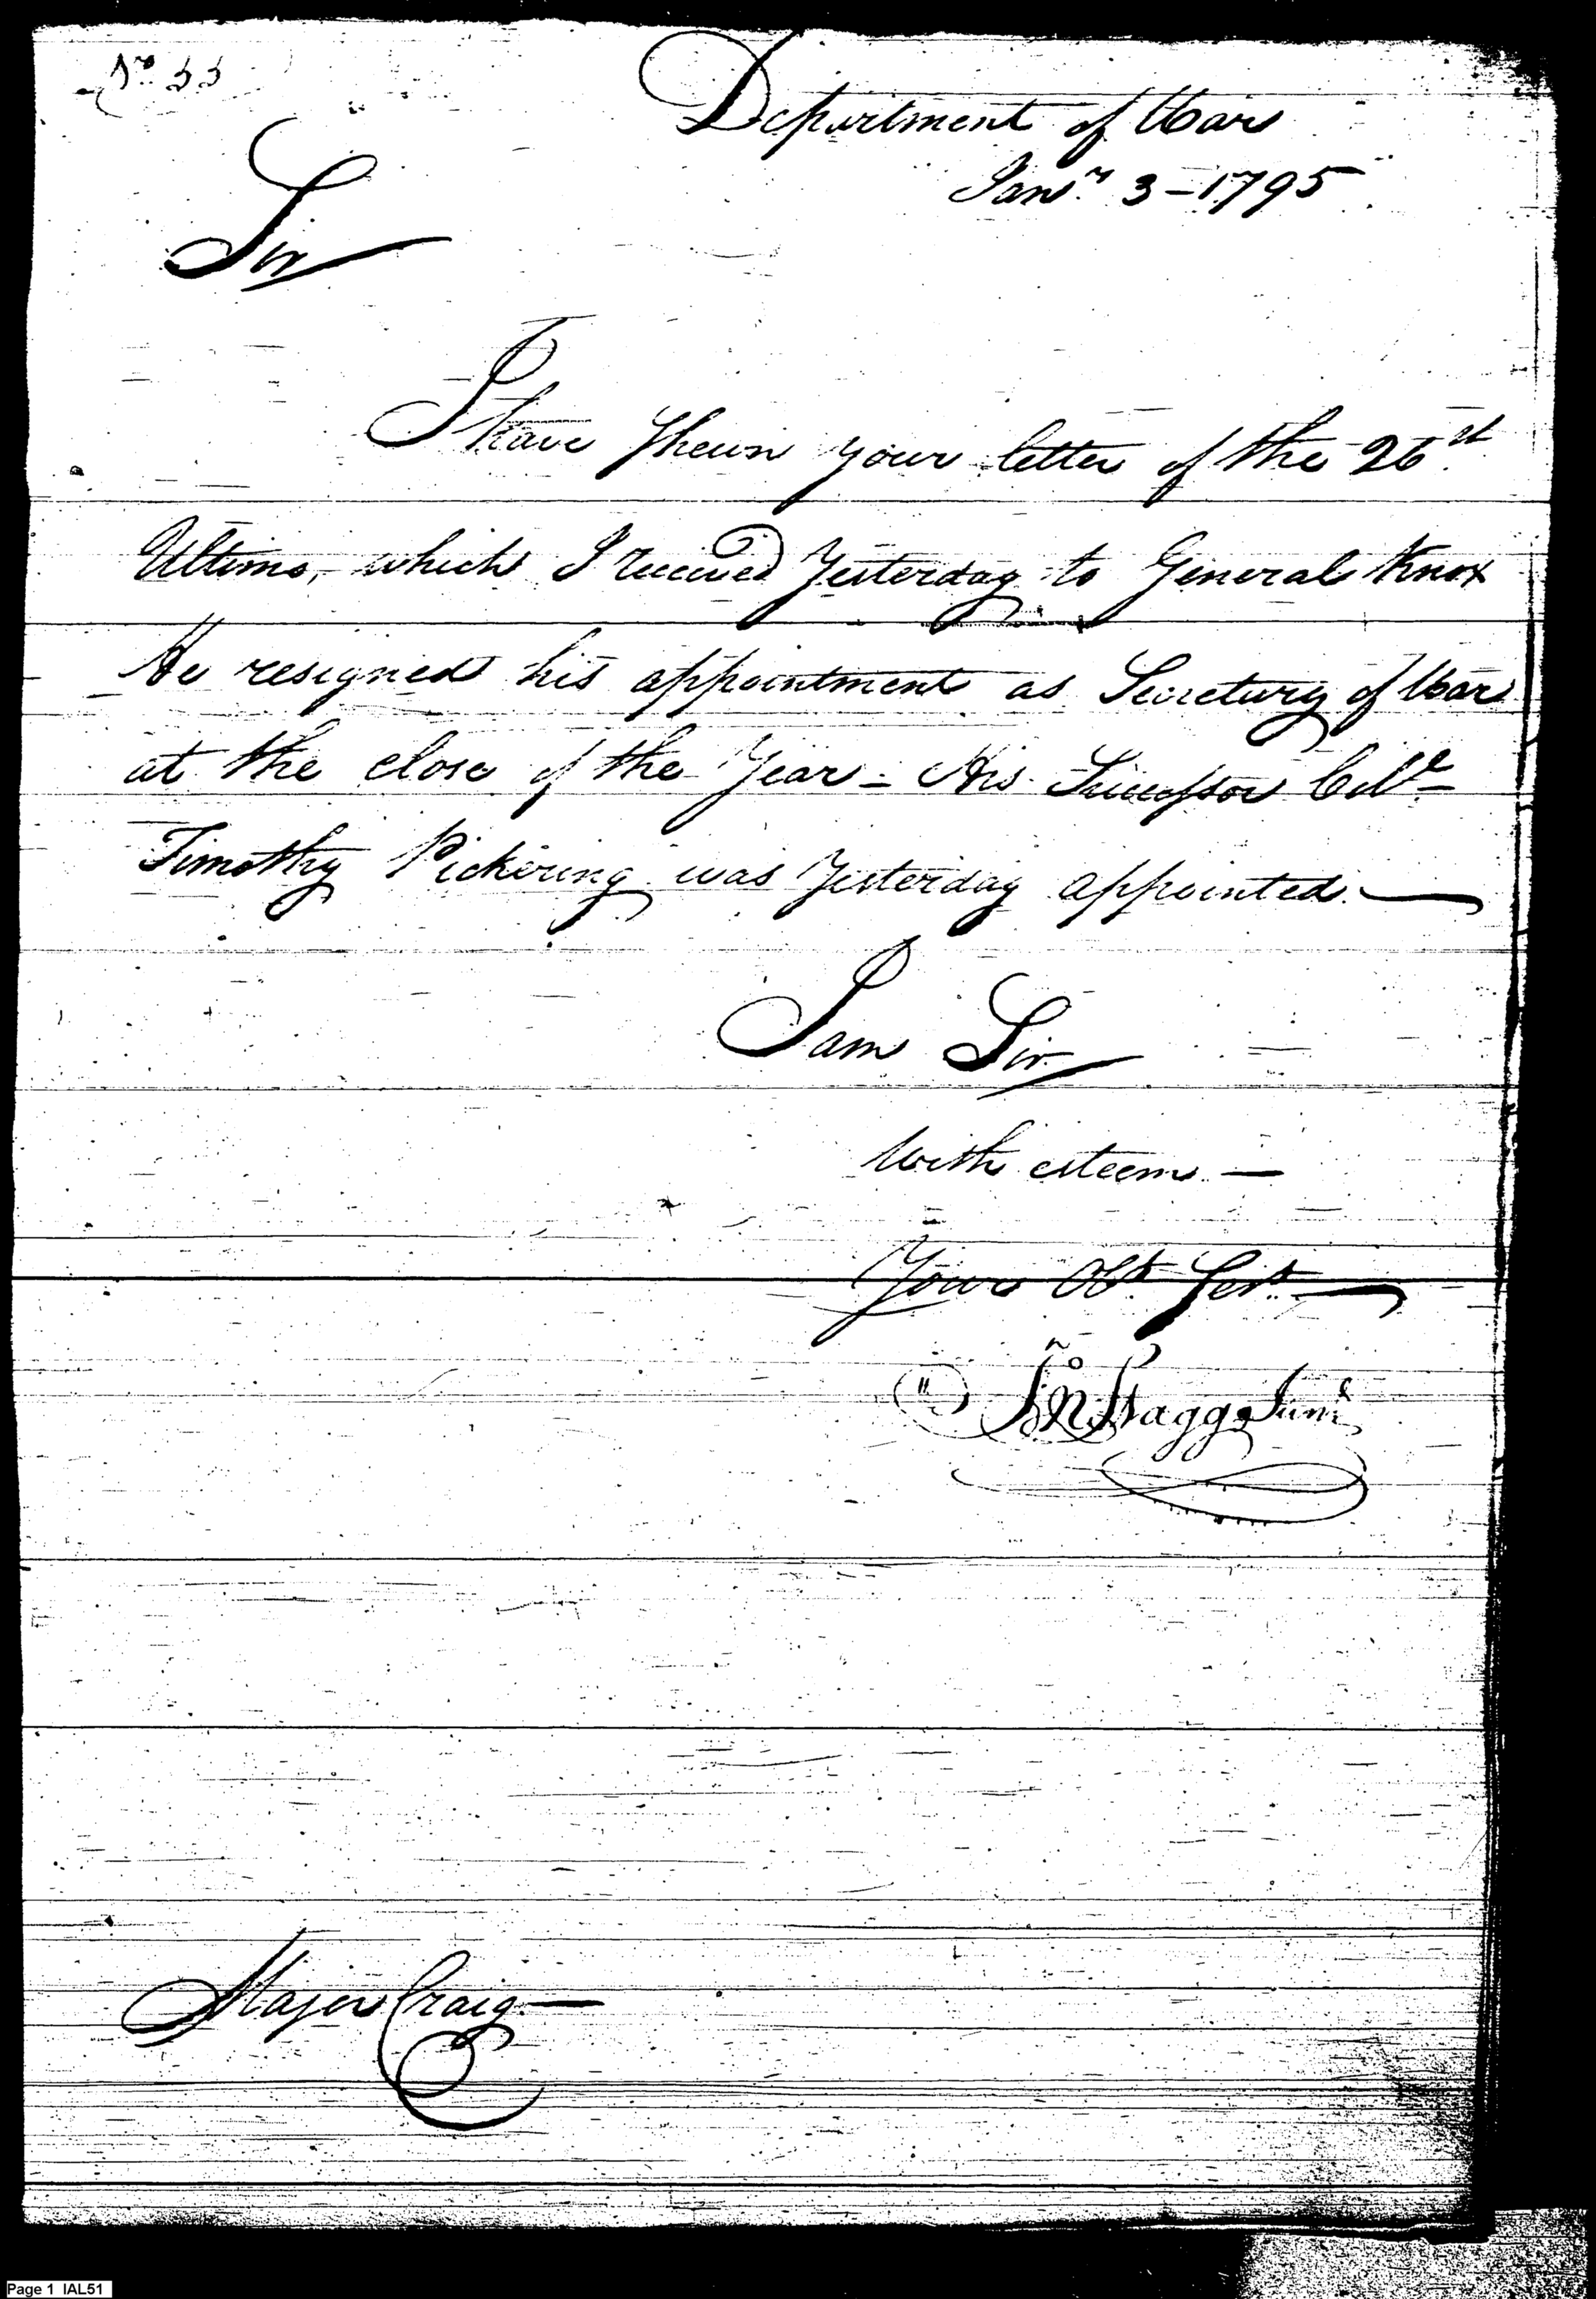 No 33
Department of War
Jany 3 - 1795
Sir
I have shewn your letter of the 26st
Ultimo, which I received Yesterday to General Knox
He resigned his appointment as Secretary of War
at the close of the Year - His Successor Colo
Timothy Pickering was Yesterday appointed. —
I am Sir
With esteem —
Your Obt Sert —
Jno Stagg Junr
Major Craig —
Page 1 IAL51